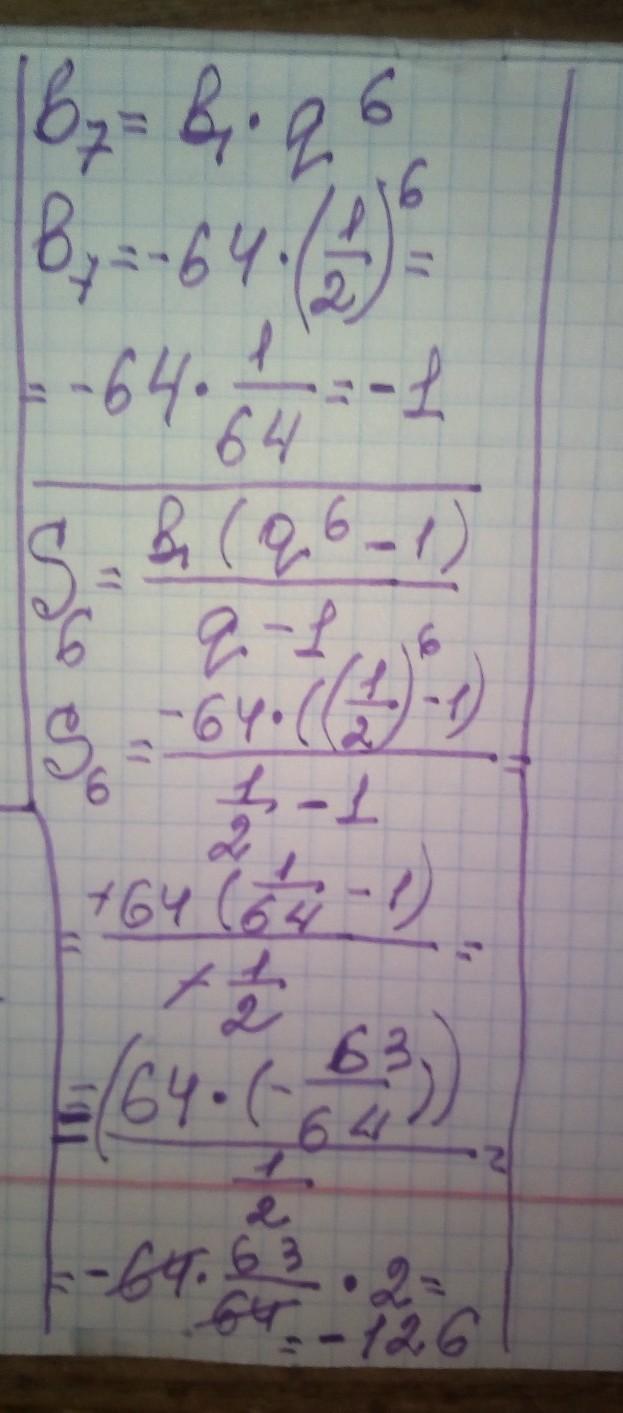 b₇ = b₁ · q⁶
b₇ = -64 · (1/2)⁶ =
= -64 · 1/64 = -1
S₆ = b₁ (q⁶ - 1) / q - 1
S₆ = -64 · ((1/2)⁶ - 1) / 1/2 - 1 =
= +64 (1/64 - 1) / + 1/2 =
= (64 · (- 63/64)) / 1/2 =
= -64 · 63/64 · 2 =
= -126